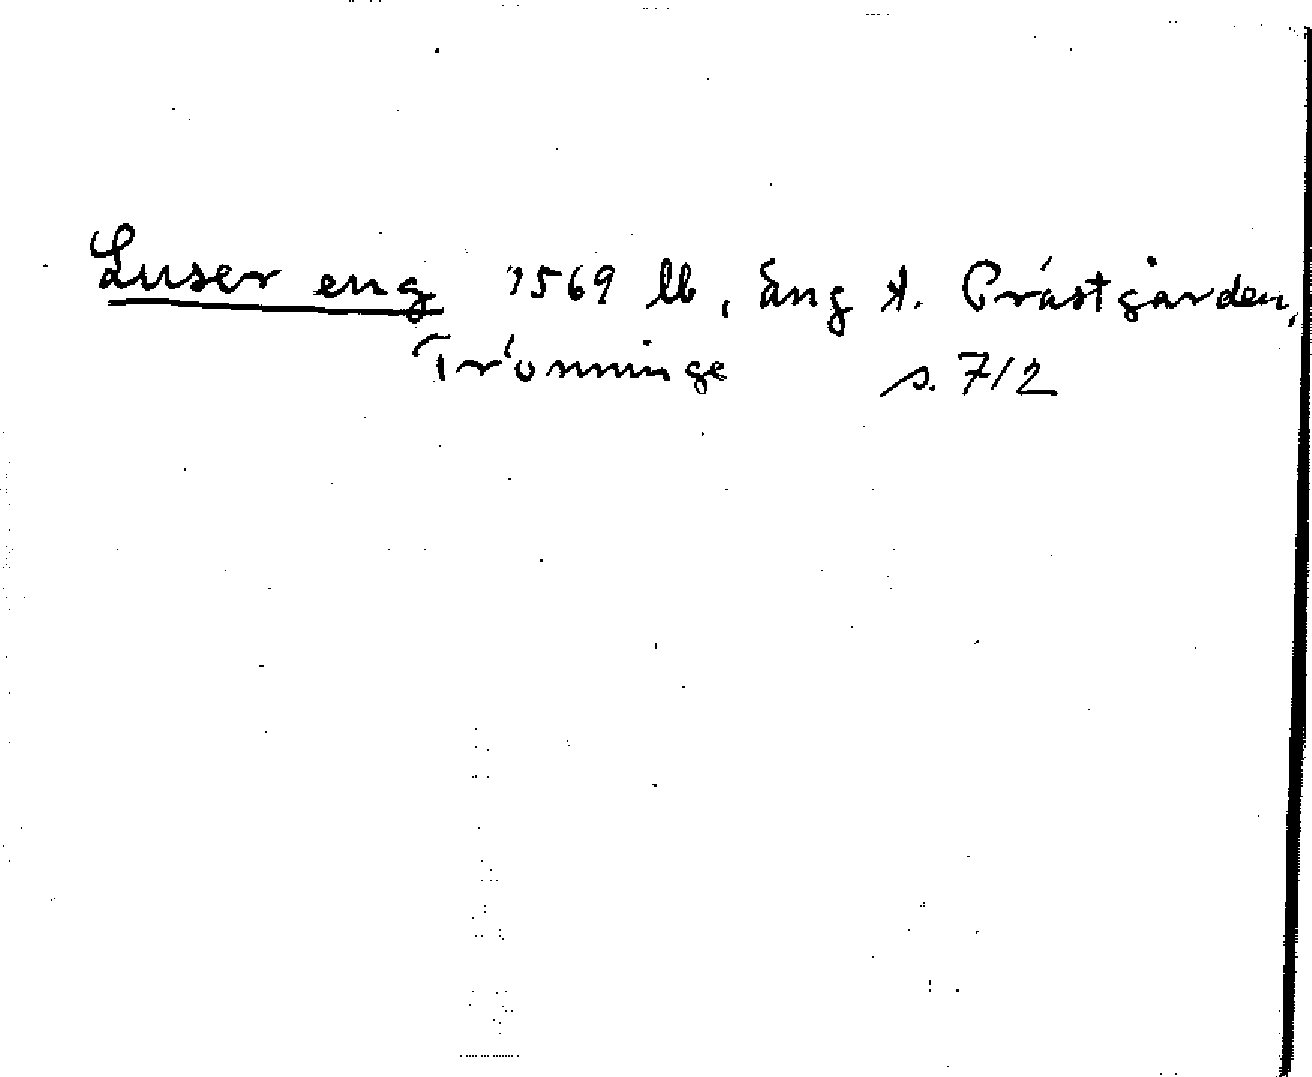 Luser eng 1569 lb, äng t. Prästgården,
Trönninge s. 7/2